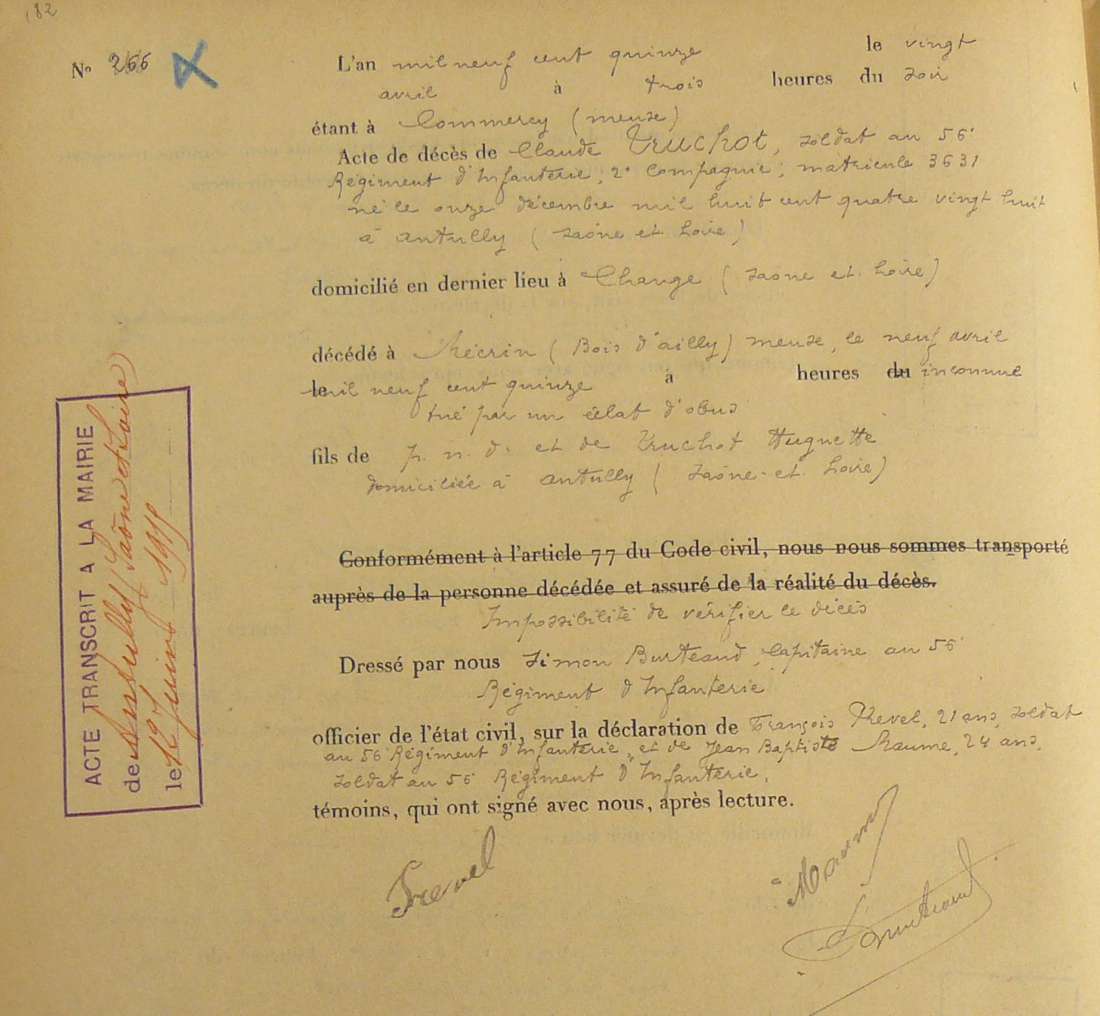 182
Nº 266
L'an mil neuf cent quinze le vingt
avril à trois heures du soir
étant à Commercy (Meuse)
Acte de décès de Claude Truchot, soldat au 56e
Régiment d'Infanterie; 2e Compagnie; matricule 3631
né le onze décembre mil huit cent quatre vingt huit
à Antully (Saône et Loire)
domicilié en dernier lieu à Change (Saône et Loire)
décédé à Mécrin (Bois d'ailly) Meuse, le neuf avril
le mil neuf cent quinze à heures du inconnue
tué par un éclat d'obus
fils de p. n. d. et de Truchot Huguette
domiciliée à Antully (Saône-et-Loire)
Conformément à l'article 77 du Code civil, nous nous sommes transporté
auprès de la personne décédée et assuré de la réalité du décès.
Impossibilité de vérifier le décès
Dressé par nous Simon Burteaud, Capitaine au 56e
Régiment d'Infanterie
officier de l'état civil, sur la déclaration de François Trevel, 21 ans, soldat
au 56 Régiment d'Infanterie, et de Jean Baptiste Maume, 24 ans,
soldat au 56 Régiment d'Infanterie,
témoins, qui ont signé avec nous, après lecture.
Trevel
Maume
ACTE TRANSCRIT A LA MAIRIE
de (Saône et Loire)
le 12 Juin 1915